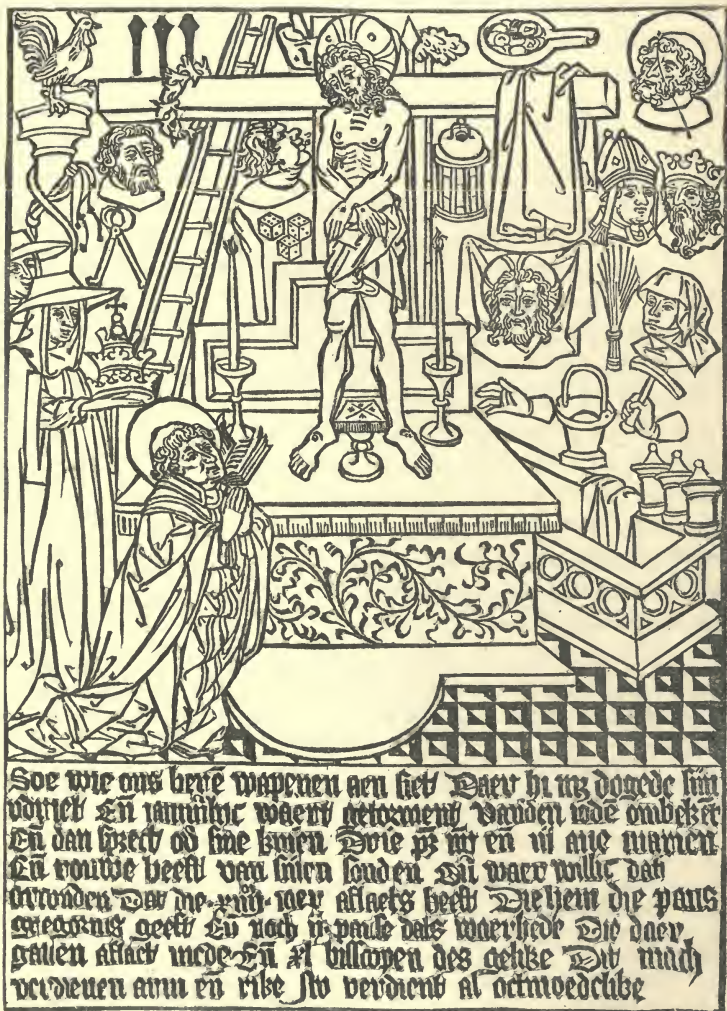 Soe wie ons herē wapenen aen siet Daer hi mz dogede sijn
verdriet En iammerlijc waert getorment Vanden iodē ombekēt
En dan spzect op sine knien Drie pz nr en iij aue marien
En rouwe heeft van sinen sonden Bū waer willic dat
orconden Dat die xiiij iaer aflaets heeft Die hem die paus
gregorius geeft En noch ij pause dats waerhede Die daer
gauen aflaet mede En xl bisscopen des gelike Dit mach
verdienen arm en rike Jw verdient al oetmoedelike